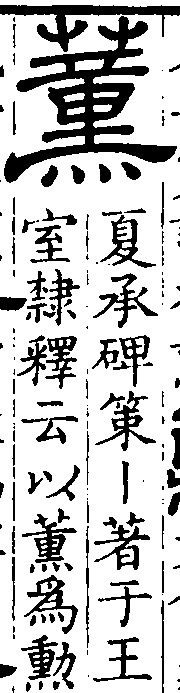 薰
夏承碑策丨著于王
室隸釋云以薰為勳